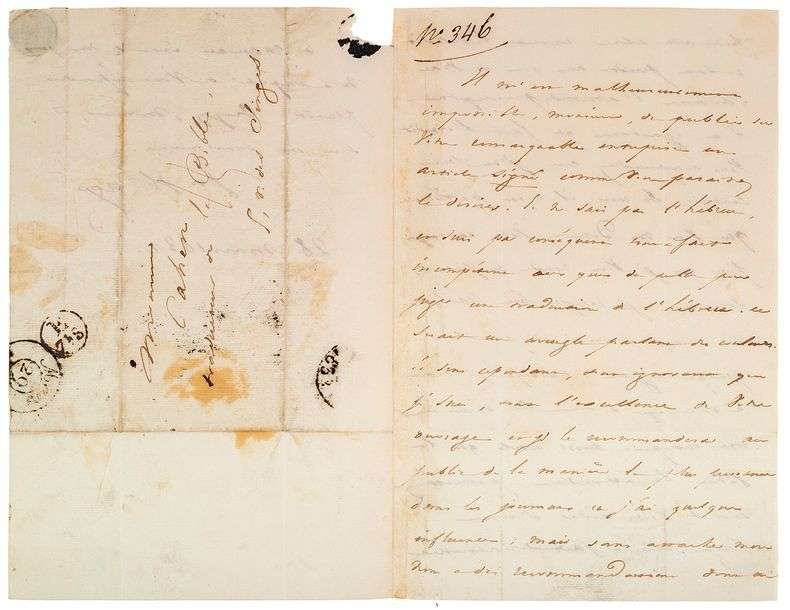 Monsieur
Cahen
traducteur de la Bible,
5, r. des Singes.
No 346
Il m'est malheureusement
impossible, monsieur, de publier sur
votre remarquable entreprise un
article signé comme vous paraissez
le désirer. Je ne sais pas l'hébreu,
je suis par conséquent tout-à-fait
incompétent aux yeux du public pour
juger une traduction de l'hébreu. ce
serait un aveugle parlant des couleurs.
Je sens cependant, tout ignorant que
je suis, toute l'excellence de votre
ouvrage et je le recommanderai au
public de la manière la plus
dans les journaux où j'ai quelque
influence ; mais sans attacher mon
nom à des recommandations dont